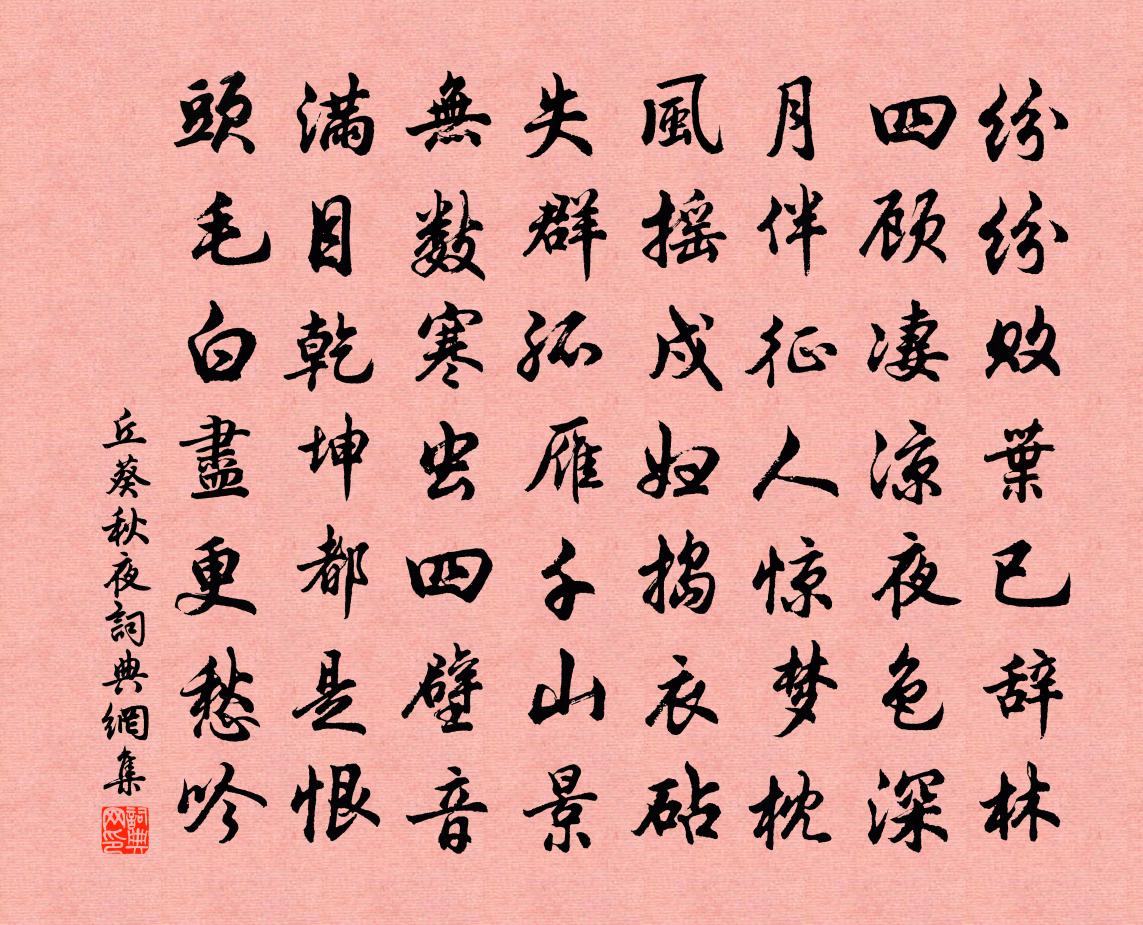 纷纷败葉已辞林
四顾凄凉夜色深
月伴征人惊梦枕
風摇戍妇捣衣砧
失群孤雁千山景
無数寒虫四壁音
满目乾坤都是恨
頭毛白盡更愁吟
丘葵秋夜詞典網集
詞典网印